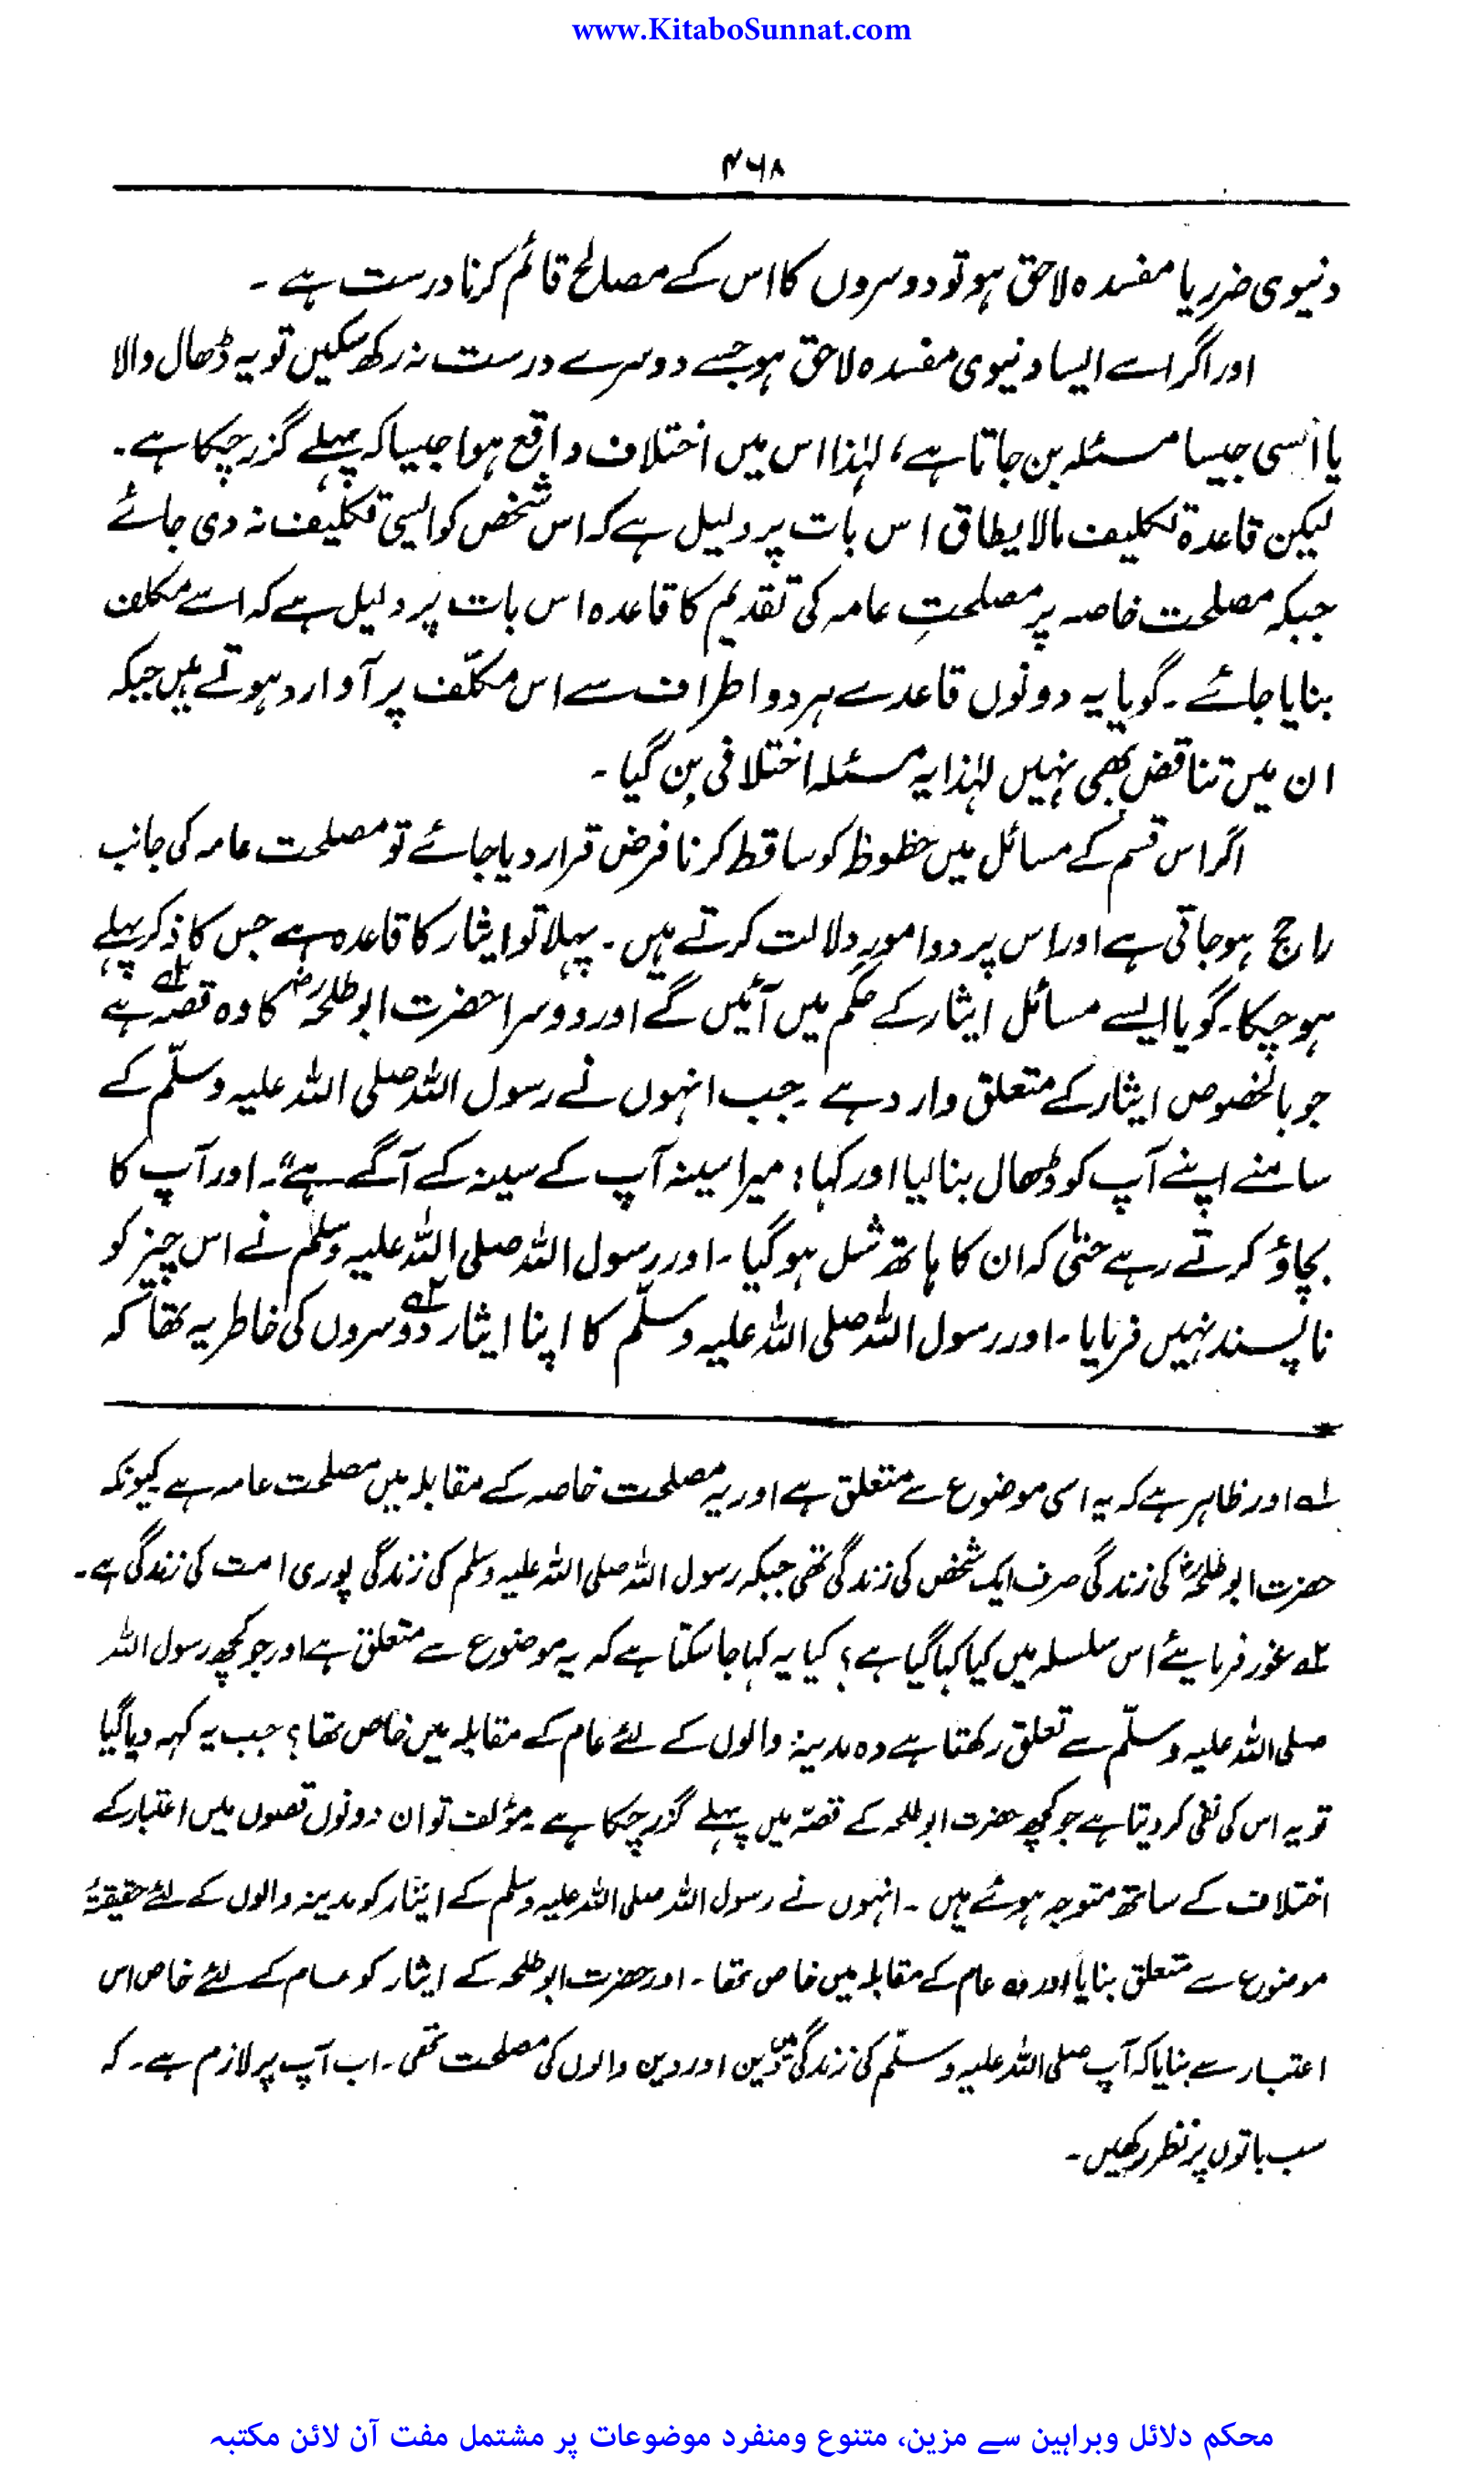 www.KitaboSunnat.com
۴۶۸
دنیوی ضرر یا مفسدہ لاحق ہو تو دوسروں کا اس کے مصالح قائم کرنا درست ہے ۔
اور اگر اسے ایسا دنیوی مفسدہ لاحق ہو جسے دوسرے درست نہ رکھ سکیں تو یہ ڈھال والا
یا اُسی جیسا مسئلہ بن جاتا ہے، لہٰذا اس میں اختلاف واقع ہوا جیسا کہ پہلے گزر چکا ہے۔
لیکن قاعدۃ تکلیف مالا یطاق اس بات پر دلیل ہے کہ اس شخص کو ایسی تکلیف نہ دی جائے
جبکہ مصلحت خاصہ پر مصلحتِ عامہ کی تقدیم کا قاعدہ اس بات پر دلیل ہے کہ اسے مکلف
بنایا جائے ۔ گویا یہ دونوں قاعدے ہر دو اطراف سے اس مکلّف پر آ وارد ہوتے ہیں جبکہ
ان میں تناقض بھی نہیں لہٰذا یہ مسئلہ اختلافی بن گیا ۔
اگر اس قسم کے مسائل میں حظوظ کو ساقط کرنا فرض قرار دیا جائے تو مصلحت عامہ کی جانب
راجح ہو جاتی ہے اور اس پر دو امور دلالت کرتے ہیں ۔ پہلا تو ایثار کا قاعدہ ہے جس کا ذکر پہلے
ہو چکا ۔ گویا ایسے مسائل ایثار کے حکم میں آئیں گے اور دوسرا حضرت ابوطلحہؓ کا وہ قصہ ہے لہ
جو بالخصوص ایثار کے متعلق وارد ہے ۔ جب انہوں نے رسول اللہ صلی اللہ علیہ وسلّم کے
سامنے اپنے آپ کو ڈھال بنا لیا اور کہا : میرا سینہ آپ کے سینہ کے آگے ہے"۔ اور آپ کا
بچاؤ کرتے رہے حتٰی کہ ان کا ہاتھ شل ہو گیا ۔ اور رسول اللہ صلی اللہ علیہ وسلّم نے اس چیز کو
ناپسند نہیں فرمایا ۔ اور رسول اللہ صلی اللہ علیہ وسلّم کا اپنا ایثار ۲ہ دوسروں کی خاطر یہ تھا کہ
لہ اور ظاہر ہے کہ یہ اسی موضوع سے متعلق ہے اور یہ مصلحت خاصہ کے مقابلہ میں مصلحت عامہ ہے کیونکہ
حضرت ابوطلحہؓ کی زندگی صرف ایک شخص کی زندگی تھی جبکہ رسول اللہ صلی اللہ علیہ وسلم کی زندگی پوری امت کی زندگی ہے۔
۲ہ غور فرمایئے اس سلسلہ میں کیا کہا گیا ہے؟ کیا یہ کہا جا سکتا ہے کہ یہ موضوع سے متعلق ہے اور جو کچھ رسول اللہ
صلی اللہ علیہ وسلّم سے تعلق رکھتا ہے وہ مدینہ والوں کے لئے عام کے مقابلہ میں خاص تھا؟ جب یہ کہہ دیا گیا
تو یہ اس کی نفی کر دیتا ہے جو کچھ حضرت ابوطلحہ کے قصّہ میں پہلے گزر چکا ہے ۔ مؤلف تو ان دونوں قصوں میں اعتبار کے
اختلاف کے ساتھ متوجہ ہوئے ہیں ۔ انہوں نے رسول اللہ صلی اللہ علیہ وسلم کے ایثار کو مدینہ والوں کے لئے حقیقۃً
موضوع سے متعلق بنایا اور وہ عام کے مقابلہ میں خاص تھا ۔ اور حضرت ابوطلحہ کے ایثار کو عام کے لئے خاص اس
اعتبار سے بنایا کہ آپ صلی اللہ علیہ وسلّم کی زندگی میں دین اور دین والوں کی مصلحت تھی ۔ اب آپ پر لازم ہے ۔ کہ
سب باتوں پر نظر رکھیں ۔
محکم دلائل وبراہین سے مزین، متنوع ومنفرد موضوعات پر مشتمل مفت آن لائن مکتبہ